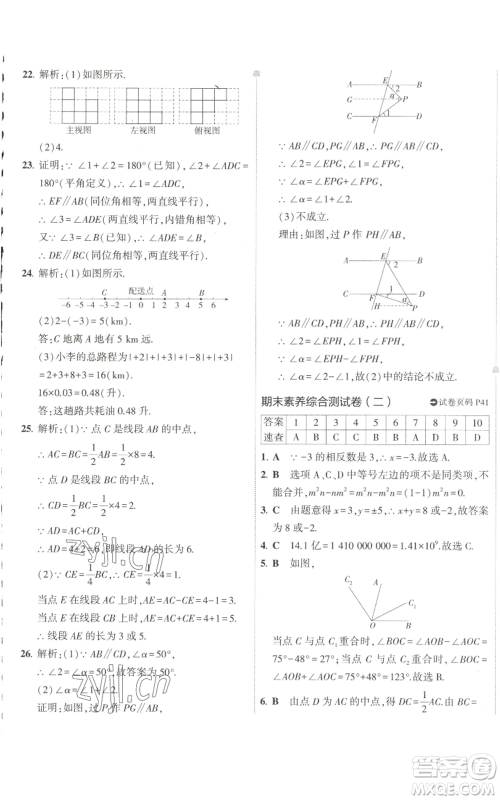 22. 解析:(1)如图所示.
主视图 左视图 俯视图
(2)4.
23. 证明:∵∠1+∠2=180°(已知),∠2+∠ADC=
180°(平角定义),∴∠1=∠ADC,
∴EF∥AB(同位角相等,两直线平行),
∴∠3=∠ADE(两直线平行,内错角相等).
又∵∠3=∠B(已知),∴∠ADE=∠B,
∴DE∥BC(同位角相等,两直线平行).
24. 解析:(1)如图所示.
C 配送点 A B
-6 -5 -4 -3 -2 -1 0 1 2 3 4 5 6
(2)2-(-3)=5(km).
答:C地离A有5 km.
(3)小李的总路程为|+2|+|+3|+|-8|+|+3|
=2+3+8+3=16(km),
16×0.03=0.48(升).
答:这趟路共耗油0.48升.
25. 解析:(1)∵点C是线段AB的中点,
∴AC=BC=1/2AB=1/2×8=4.
∵点D是线段BC的中点,
∴CD=1/2BC=1/2×4=2.
∵AD=AC+CD,
∴AD=4+2=6,即线段AD的长为6.
(2)∵CE=1/4BC,∴CE=1/4×4=1.
当点E在线段AC上时,AE=AC-CE=4-1=3;
当点E在线段BC上时,AE=AC+CE=4+1=5.
26. 解析:(1)∵AB∥CD,∠α=50°,
∴∠2=∠α=50°.故答案为50°.
(2)∠α=∠1+∠2.
证明:如图,过P作PG∥AB,
E 2
A B
G α P
1
C F D
∵AB∥CD,PG∥AB,∴PG∥CD,
∴∠2=∠EPG,∠1=∠FPG,
∵∠α=∠EPG+∠FPG,
∴∠α=∠1+∠2.
(3)不成立.
理由:如图,过P作PH∥AB,
E
A 2 B
1
C F α D
H P
∵AB∥CD,∴PH∥CD,
∴∠2=∠EPH,∠1=∠FPH,
∵∠α=∠EPH-∠FPH,
∴∠α=∠2-∠1,故(2)的结论不成立.
期末素养综合测试卷(二) 试卷页码 P41
答案 1 2 3 4 5 6 7 8 9 10
速查 A B C C B B D D A D
1. A ∵-3的相反数是3,故选A.
2. B 选项A、C、D中等号左边的项不是同类项,不
能合并,m²n-m²n=(1-1)m²n=0.故选B.
3. C 由题意得x=3,y=±5,∴x+y=8或-2.故答案
为8或-2.
4. C 14.1亿=1 410 000 000=1.41×10⁹.故选C.
5. B 如图,
C A B O
当点C与点C₁重合时,∠BOC=∠AOB-∠AOC=
75°-48°=27°;当点C与点C₂重合时,∠BOC=
∠AOB+∠AOC=75°+48°=123°.故选B.
6. B 由点D为AC的中点,得DC=1/2AC.由BC=
zyjl.cn
zyjl.cn
答案圈
MXQE.COM